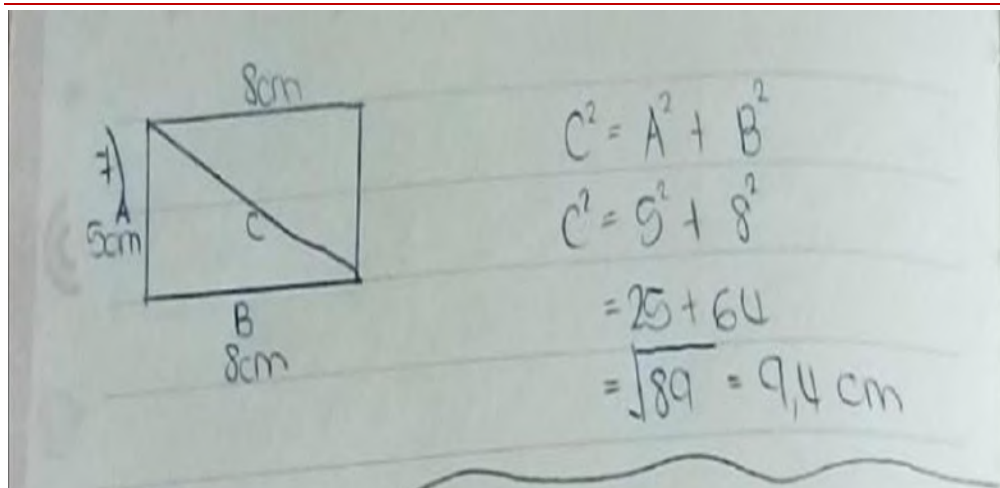 8cm
7)
A
5cm
C
B
8cm
C² = A² + B²
C² = 5² + 8²
= 25 + 64
= √89 = 9,4 cm